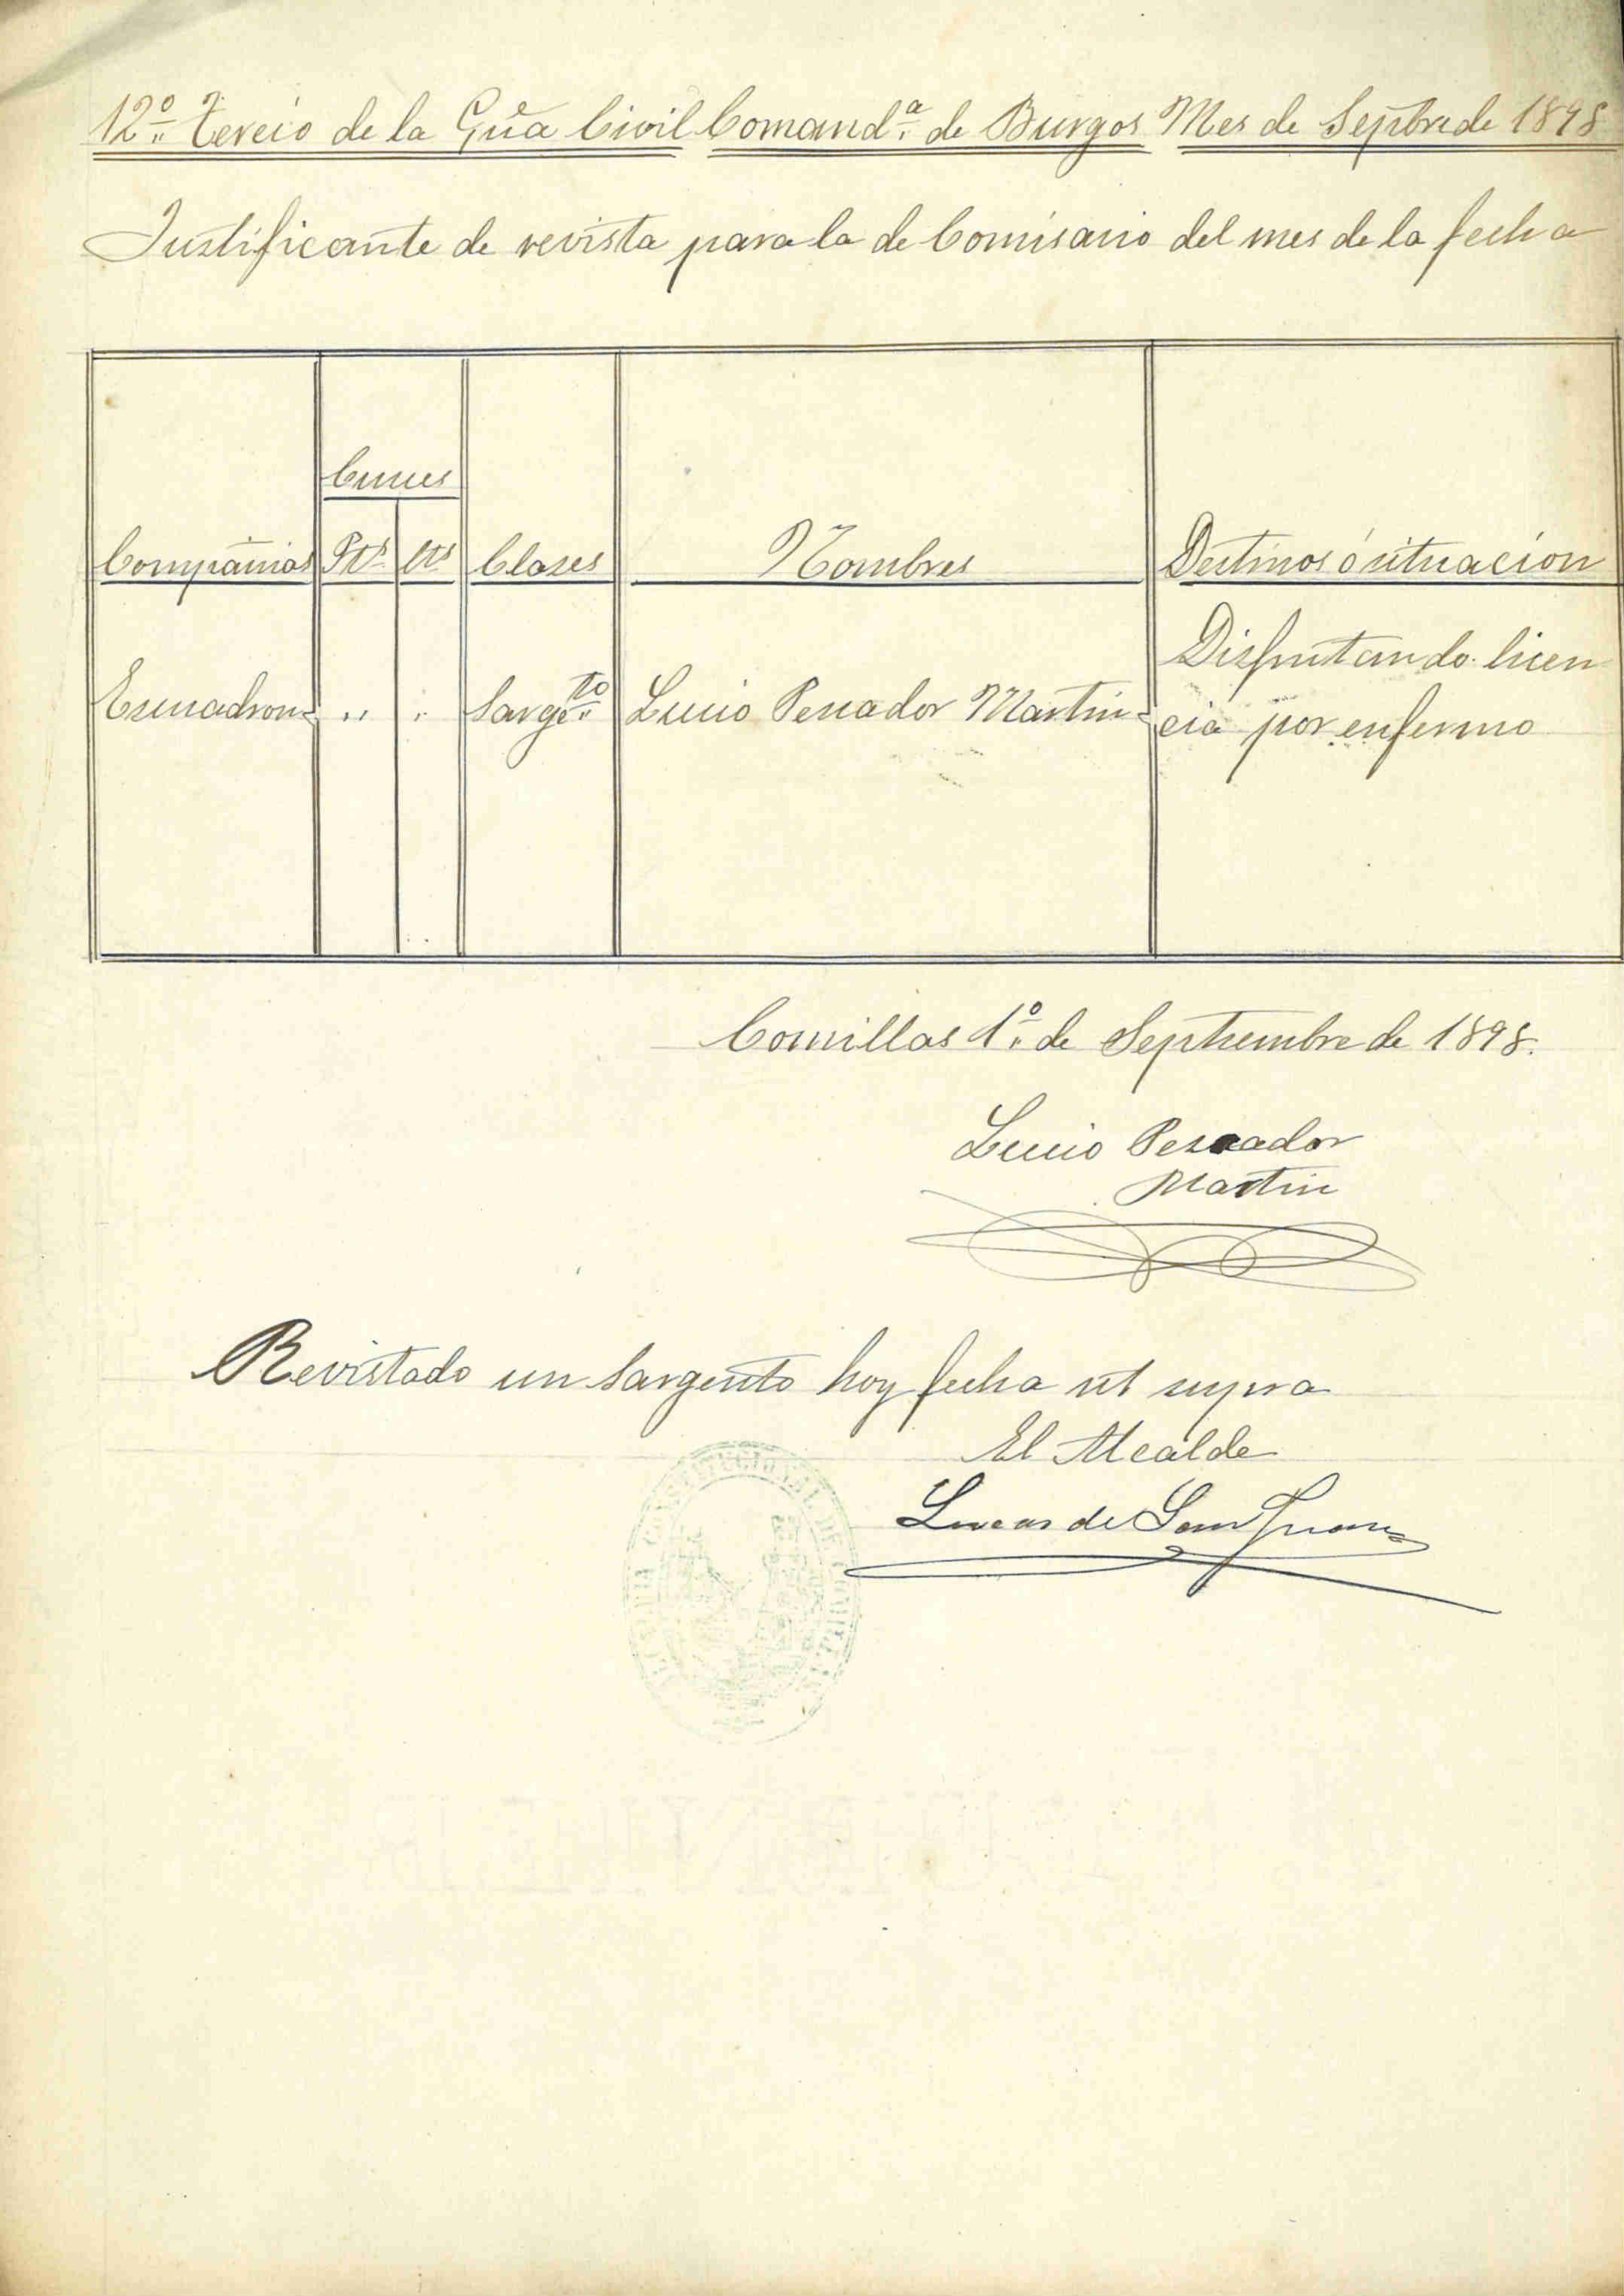 12º Tercio de la Gũa Civil Comandª de Burgos Mes de Sepbre de 1898
Justificante de revista para la de Comisario del mes de la fecha
Cruces
Compañias Pts Cts Clases Nombres Destinos ó situacion
Escuadron " " Sargto Lucio Pescador Martin Disfrutando licen
cia por enfermo
Comillas 1º de Septiembre de 1898.
Lucio Pescador
Martin
Revistado un Sargento hoy fecha ut supra
El Alcalde
Lucas de San Juan